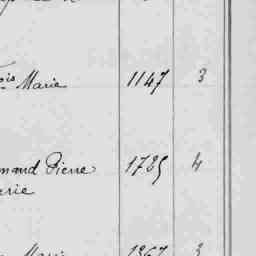 ois Marie 1147 3
mand Pierre 1785 4
erie
Marie 1367 3